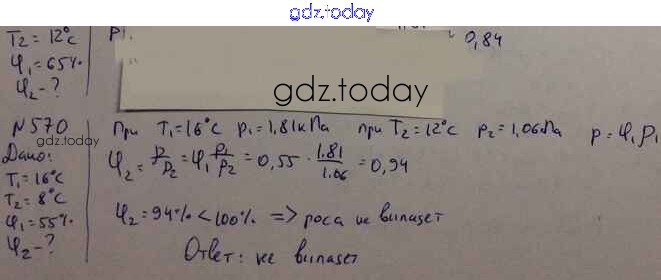 gdz.today
T₂ = 12°C
φ₁ = 65%
φ₂ - ?
0,84
gdz.today
N 570
gdz.today
Дано:
T₁ = 16°C
T₂ = 8°C
φ₁ = 55%
φ₂ - ?
При T₁ = 16°C p₁ = 1,81 кПа при T₂ = 12°C p₂ = 1,06 кПа p = φ₁ p₁
φ₂ = p/p₂ = φ₁ p₁/p₂ = 0,55 · 1.81/1.06 = 0,94
φ₂ = 94% < 100% => роса не выпадет
Ответ: не выпадет